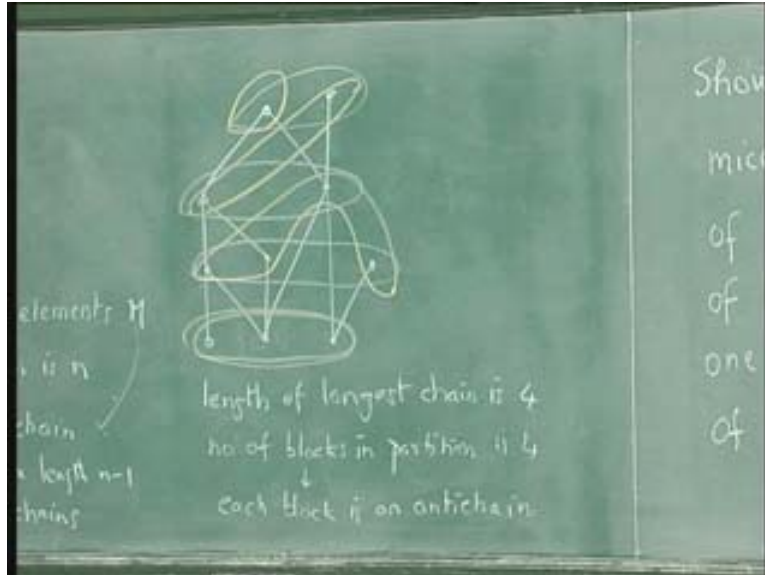 elements M
is n
chain
length n-1
chains
length of longest chain is 4
no of blocks in partition is 4
↓
each block is an antichain
Show
mic
of
of
one
of